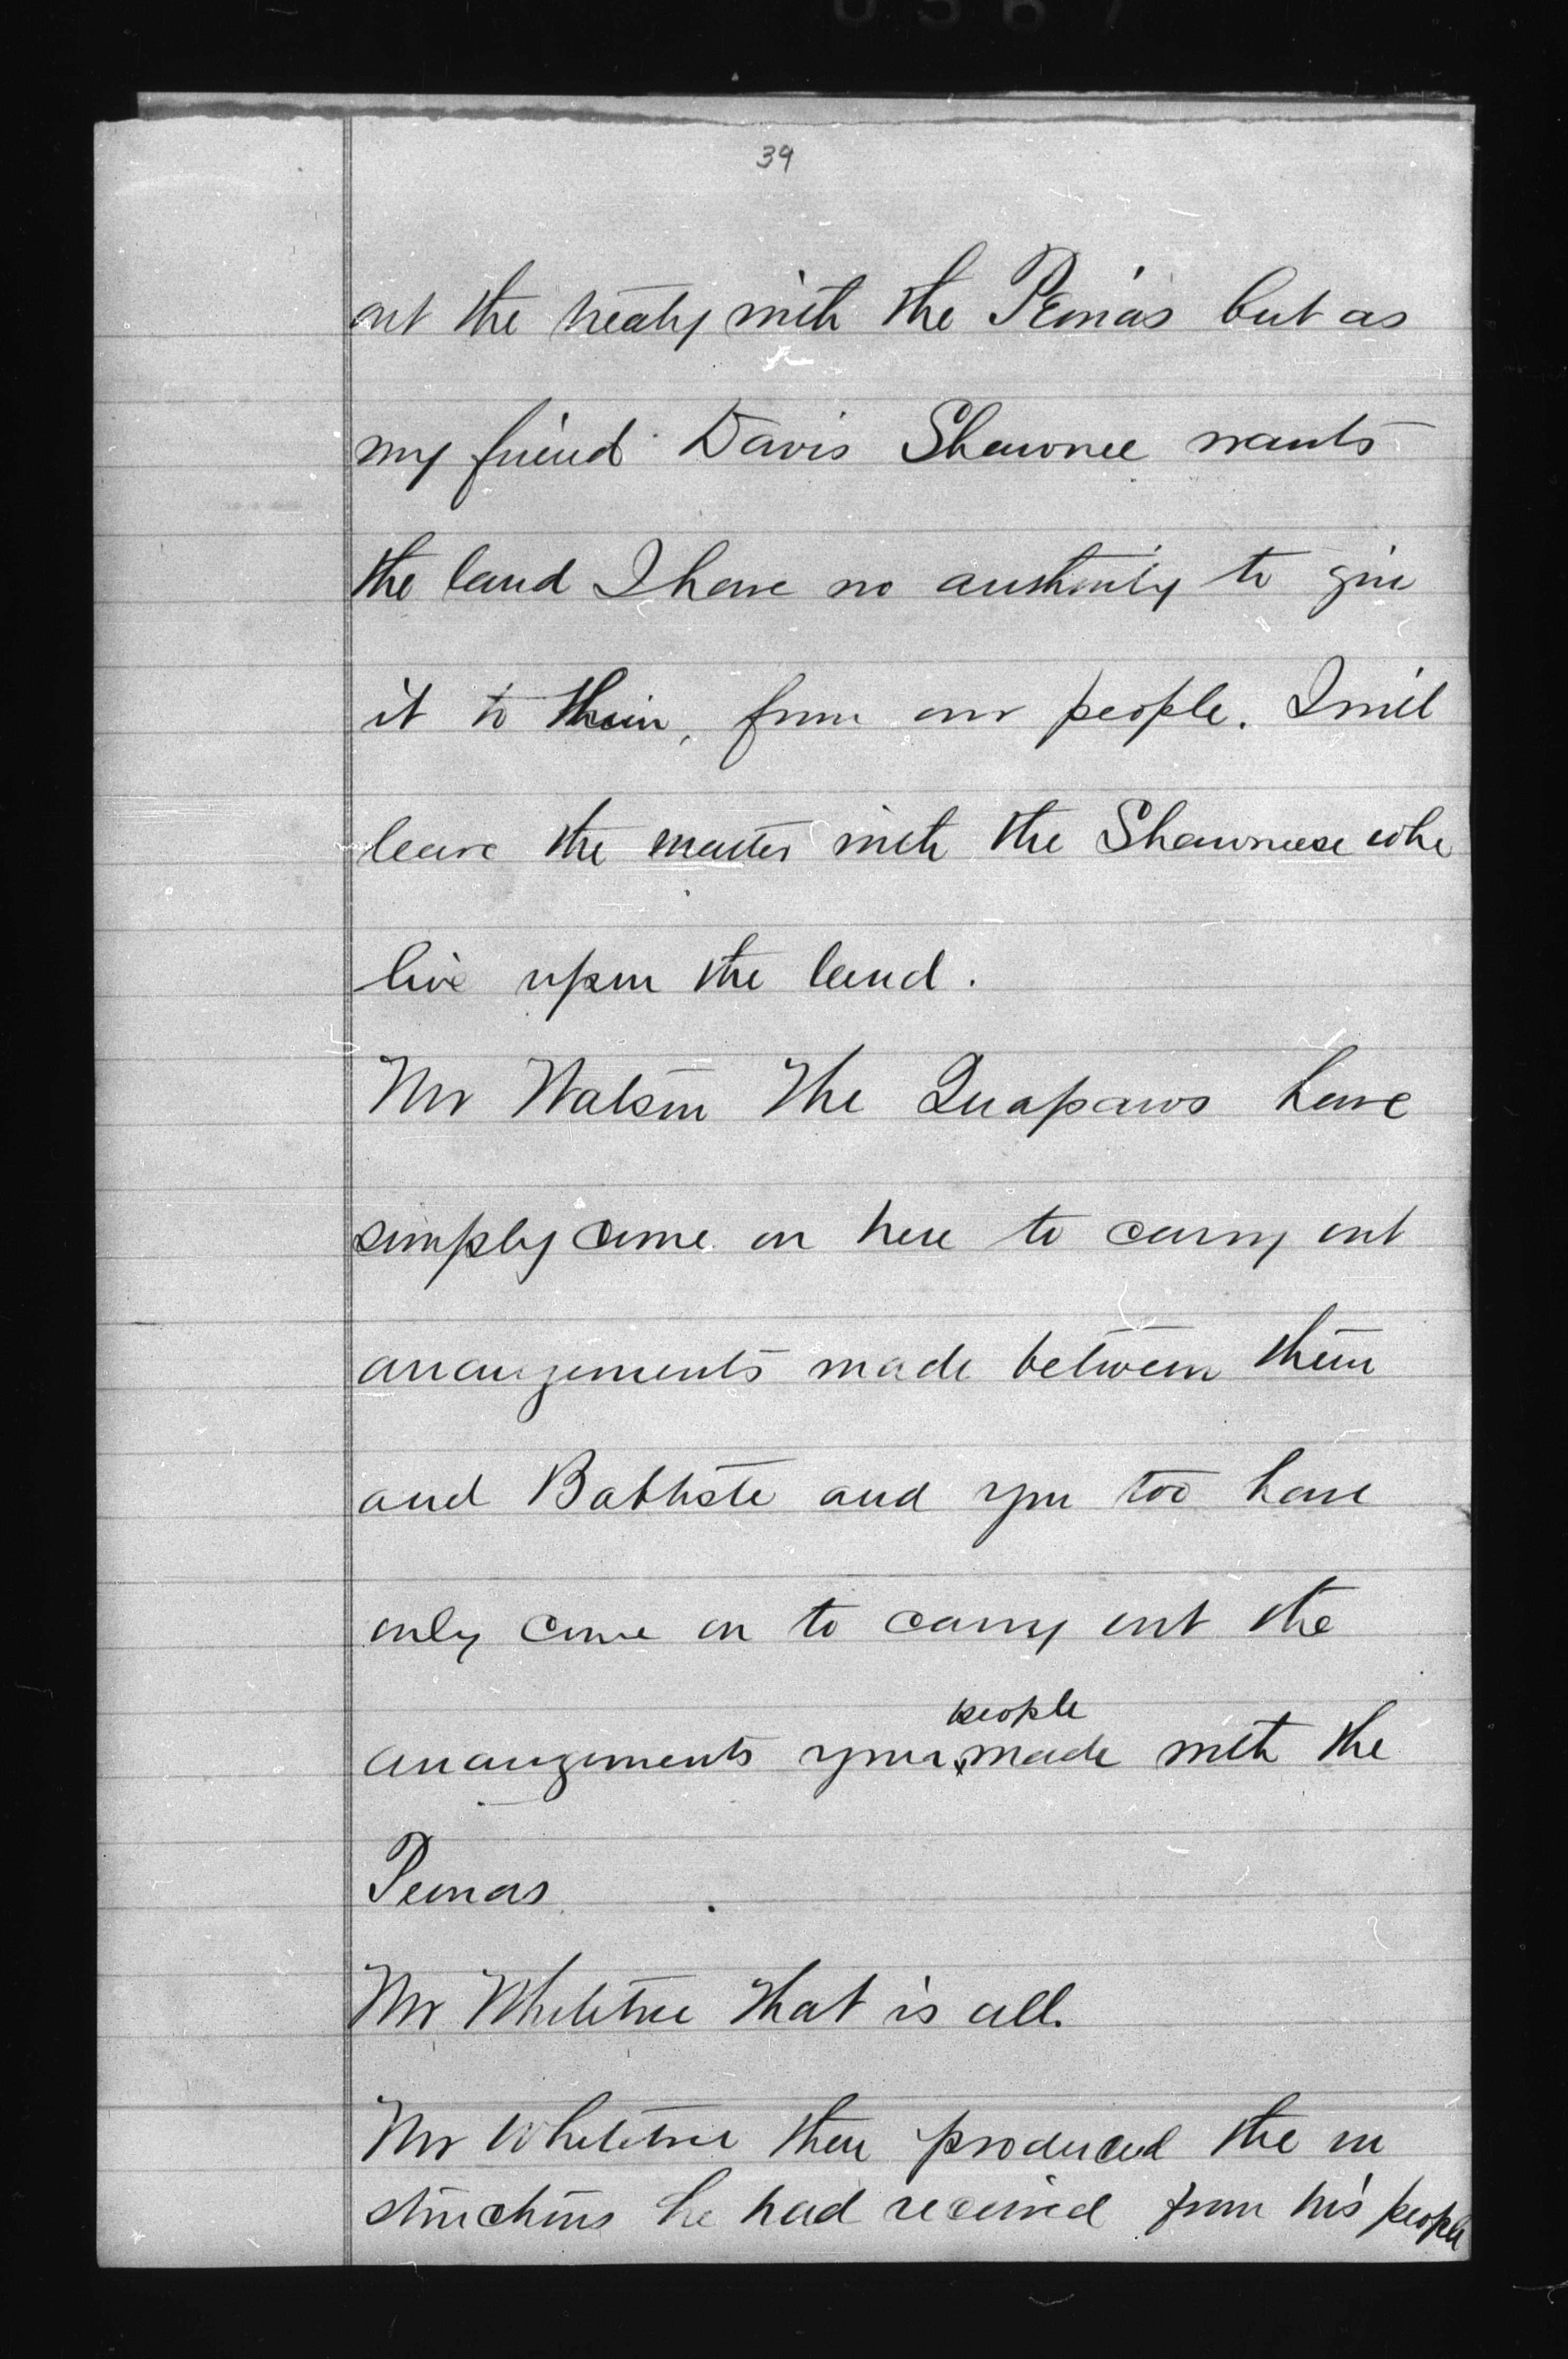 39
out the treaty with the Peorias but as
my friend Davis Shawnee wants
the land I have no authority to give
it to them, from our people. I will
leave the matter with the Shawnees who
live upon the land.
Mr Watson The Quapaws have
simply come on here to carry out
arrangements made between them
and Babtiste and you too have
only come on to carry out the
people
arrangements your made with the
Peorias
Mr Whitetree That is all.
Mr Whitetree then produced the in
structions he had received from his people